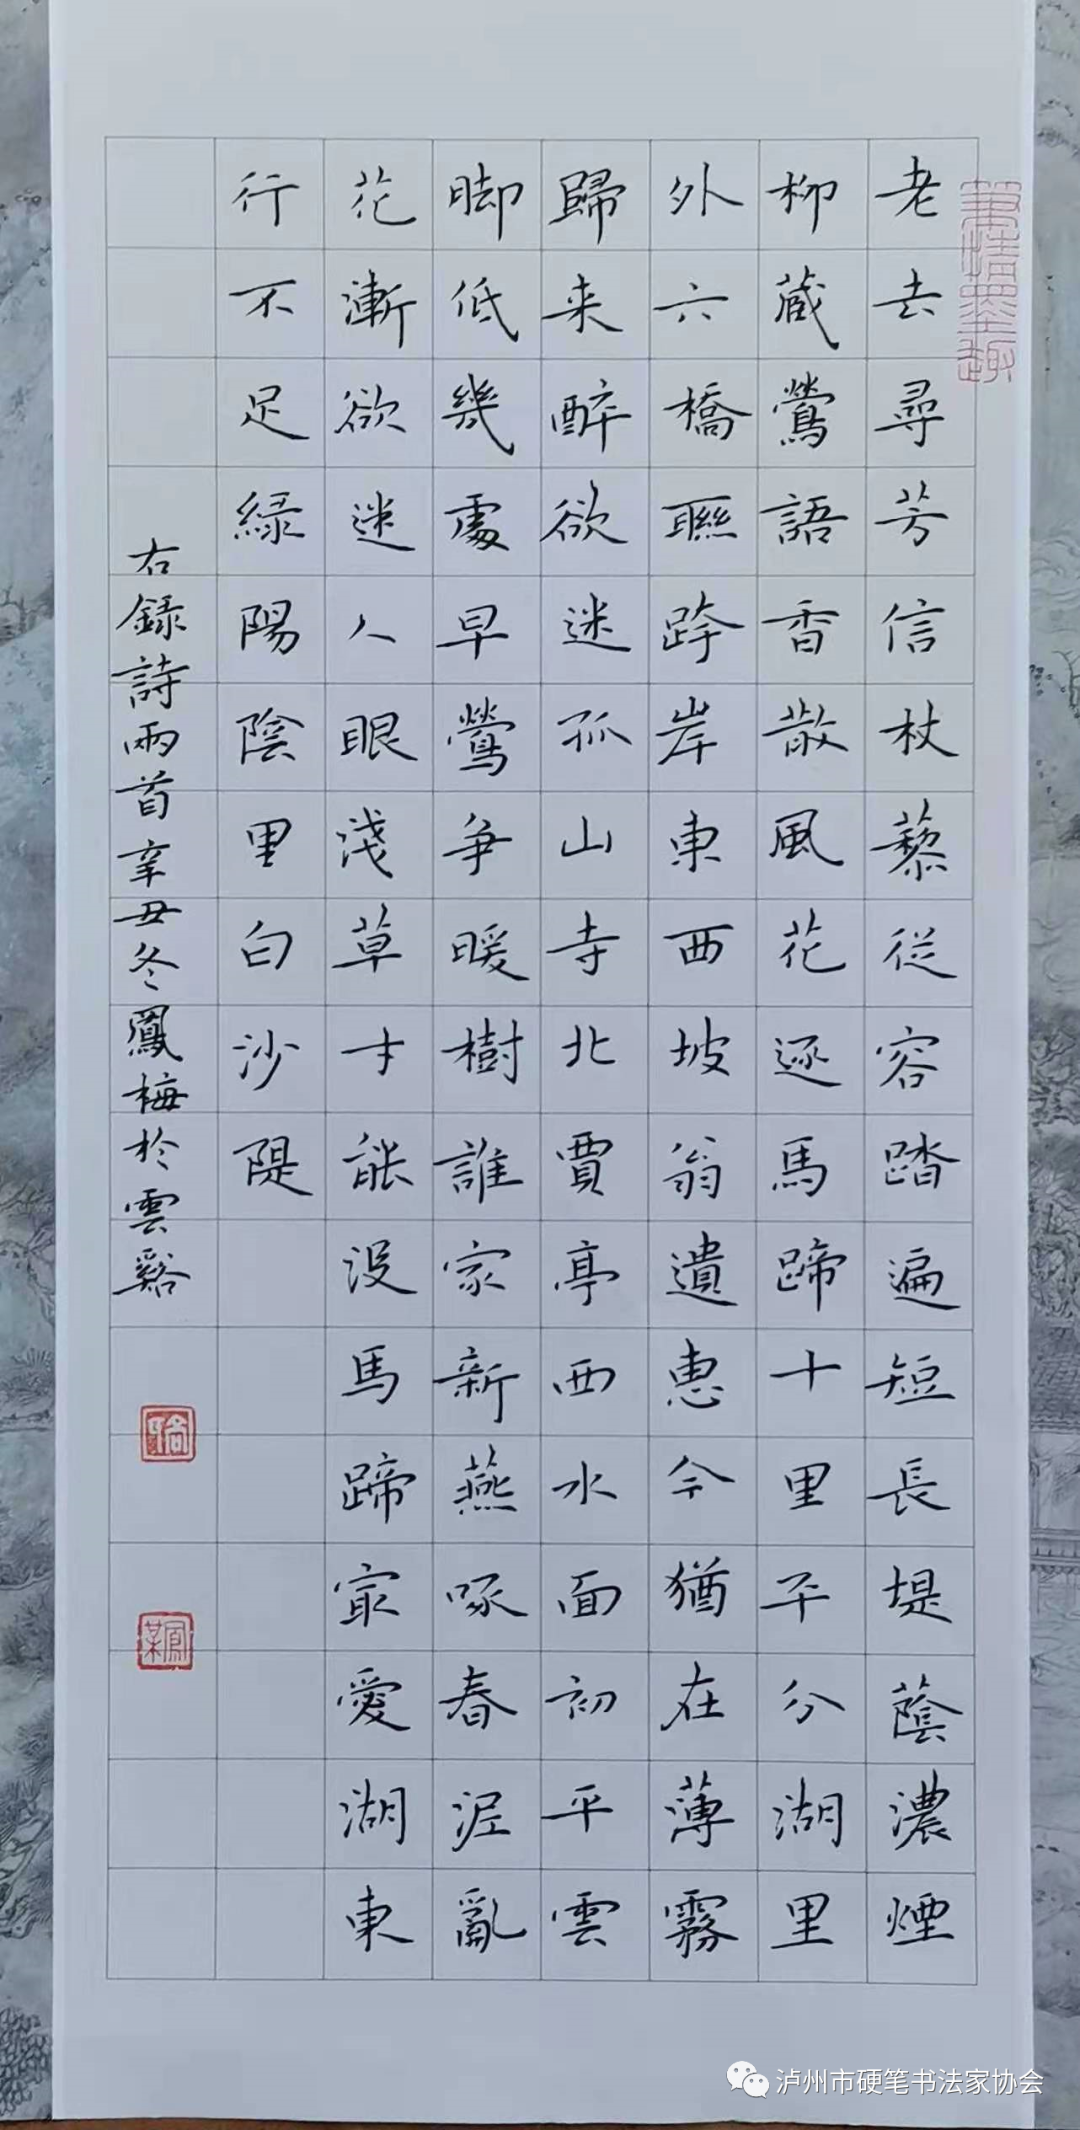 老去尋芳信杖藜從容踏遍短長堤蔭濃煙
柳藏鶯語香散風花逐馬蹄十里平分湖里
外六橋聯跨岸東西坡翁遺惠今猶在薄霧
歸来醉欲迷孤山寺北賈亭西水面初平雲
脚低幾處早鶯爭暖樹誰家新燕啄春泥亂
花漸欲迷人眼淺草才能没馬蹄最愛湖東
行不足緑陽陰里白沙隄
右録詩兩首辛丑冬鳳梅於雲谿
筆情墨趣
泸州市硬笔书法家协会